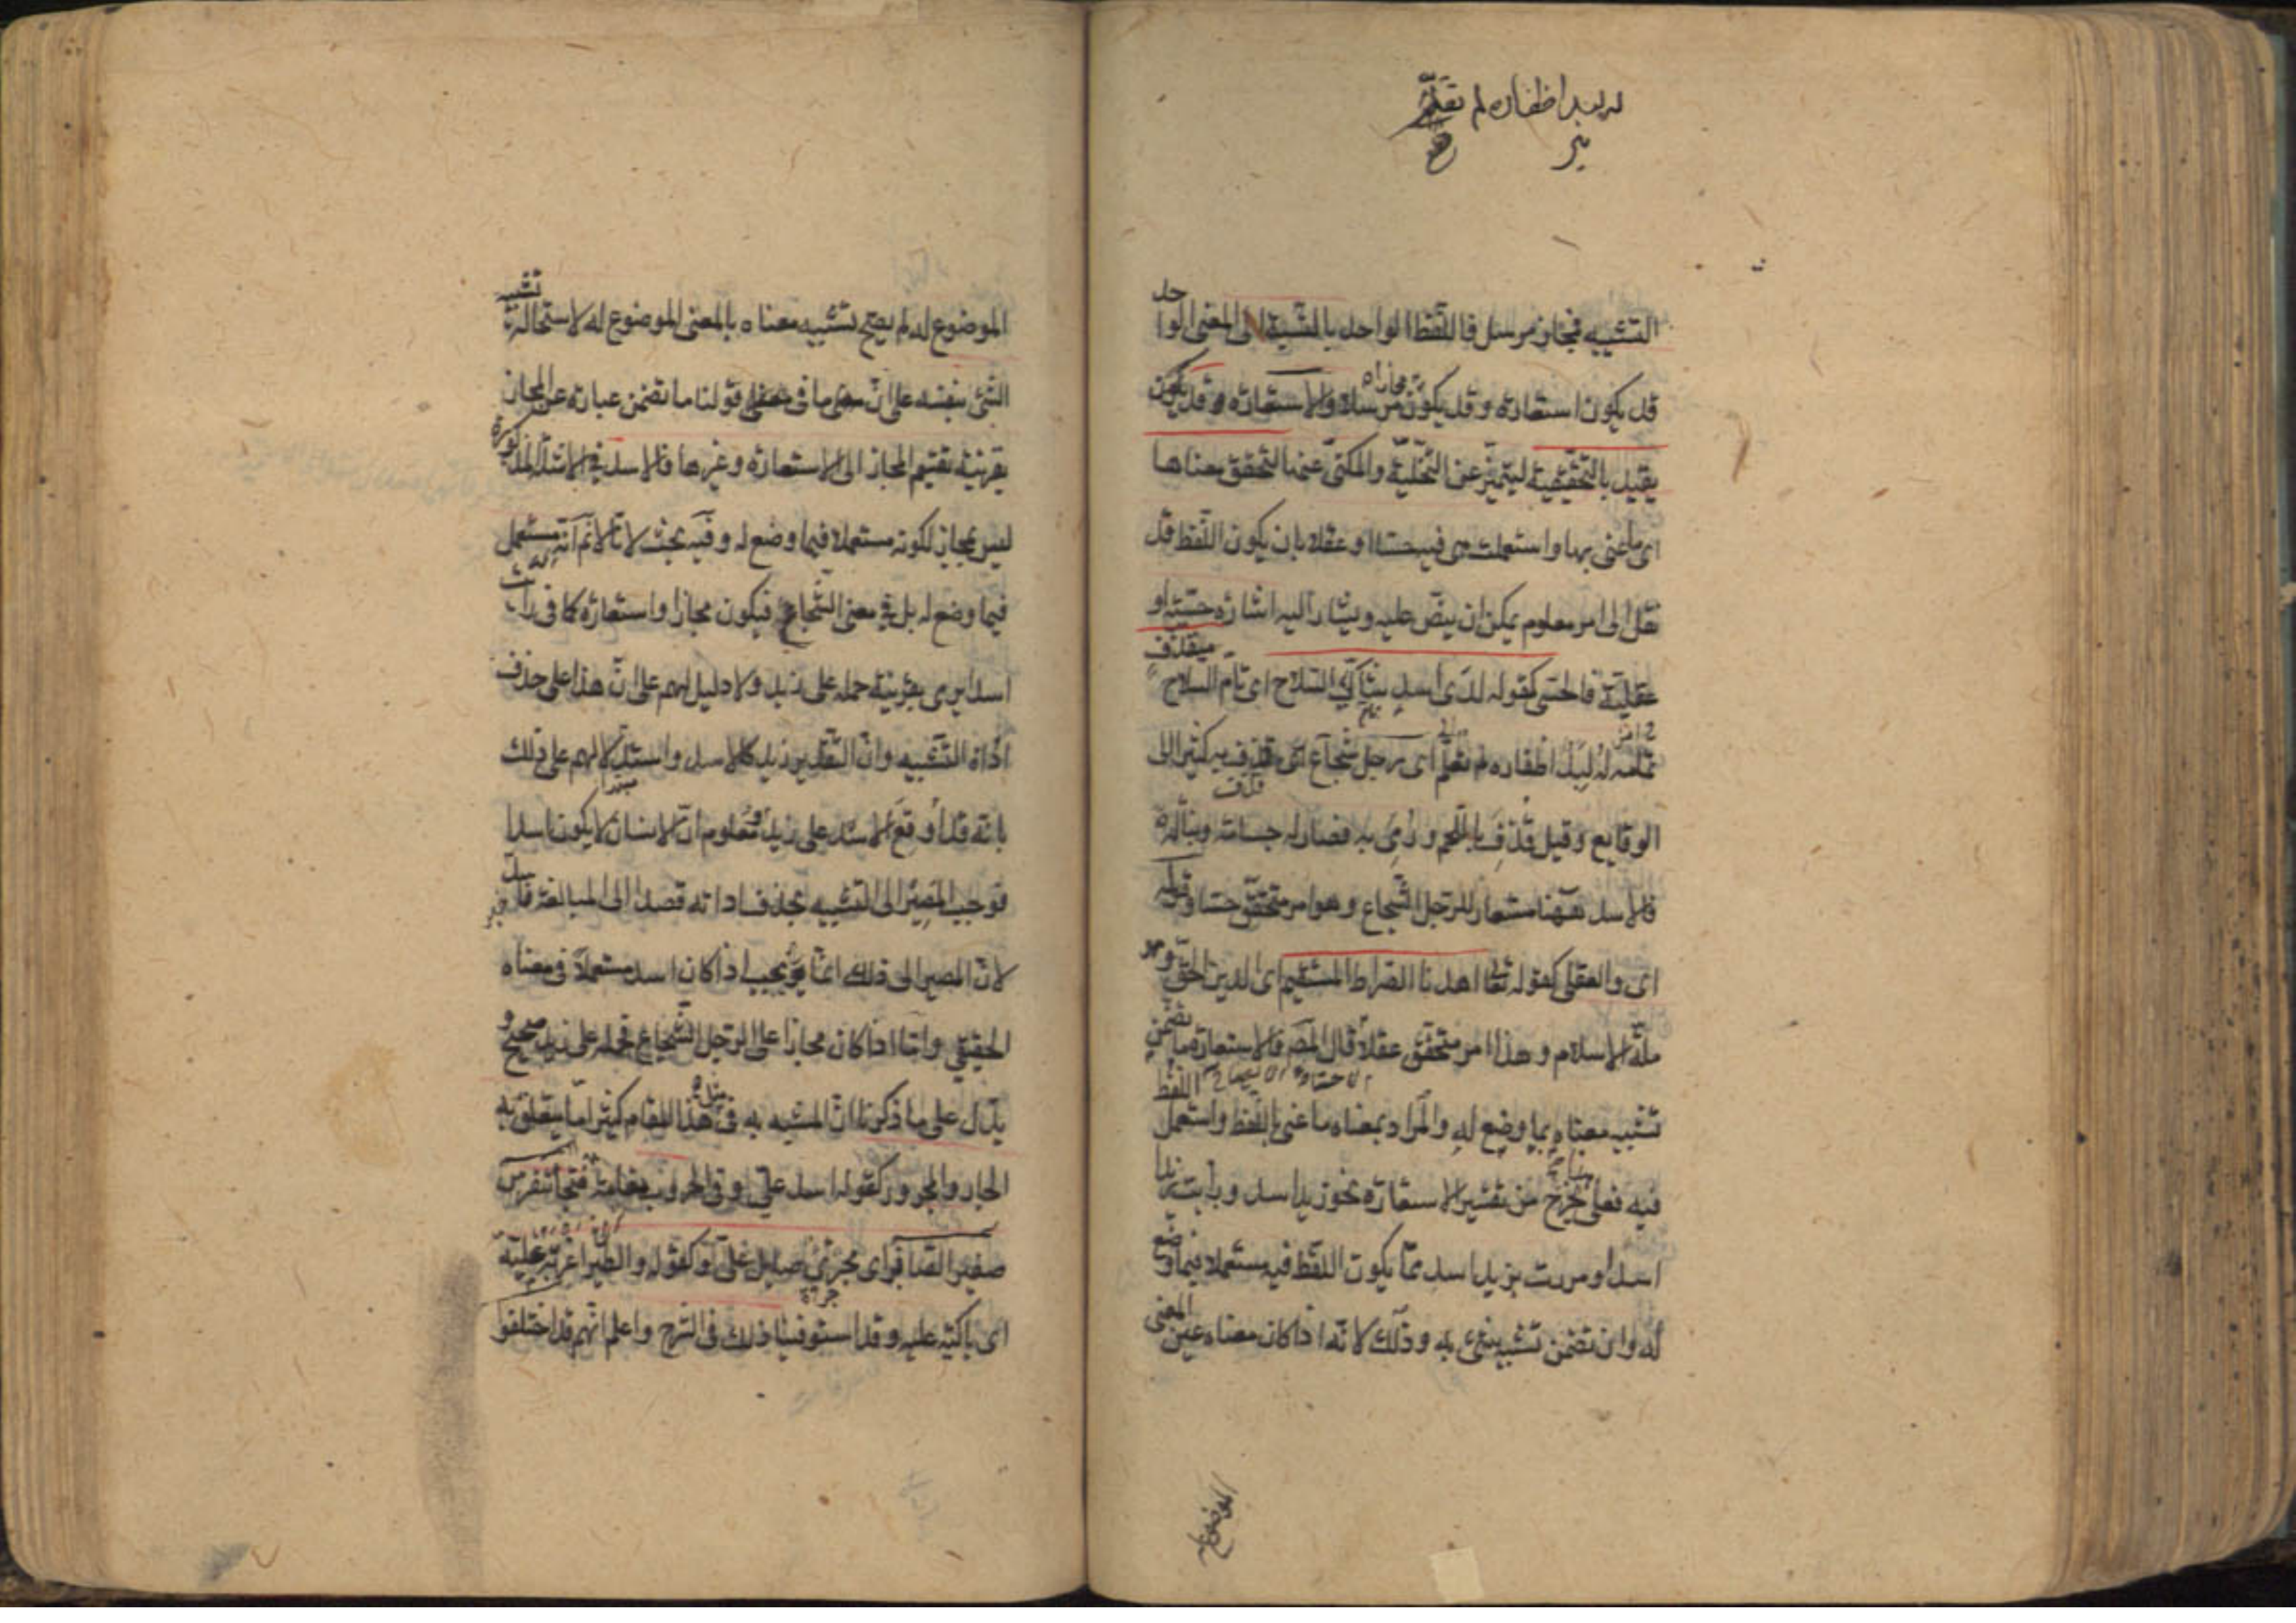 له لبد اظفاره لم تقلم
التشبيه فمجاز مرسل فاللفظ الواحد بالنسبة الى المعنى الواحد
قد يكون استعارة وقد يكون مجازا مرسلا والاستعارة وقد يكون
يقيد بالتحقيقية ليتميز عن التخيلية والمكنى عنها لتحقق معناها
اى ما عنى بها واستعملت هى فيه حسا او عقلا بان يكون اللفظ قد
نقل الى امر معلوم يمكن ان ينص عليه ويشار اليه اشارة حسية او
عقلية فالحسى كقوله لدى اسد شاكى السلاح اى تام السلاح مقذف
له لبد اظفاره لم تقلم اى رجل شجاع اى قذف به كثيرا الى
الوقايع وقيل قذف باللحم ورمى به فصار له جسامة ونبالة
فالاسد ههنا مستعار للرجل الشجاع وهو امر متحقق حسا وقوله
اى والعقلى كقوله تعا اهدنا الصراط المستقيم اى الدين الحق وهو
ملة الاسلام وهذا امر متحقق عقلا قال المص فالاستعارة ما تضمن
تشبيه معناه بما وضع له والمراد بمعناه ما عنى باللفظ واستعمل اللفظ
فيه فعلى هذا يخرج من تفسير الاستعارة نحو زيد اسد ورأيت زيدا
اسدا ومررت بزيد اسد مما يكون اللفظ فيه مستعملا فيما وضع
له وان تضمن تشبيه شئ به وذلك لانه اذا كان معناه عين المعنى
الموضوع
الموضوع له لم يصح تشبيه معناه بالمعنى الموضوع له لاستحالة تشبيه
الشئ بنفسه على ان ما فى قولنا ما تضمن عبارة عن المجاز
بقرينة تقسيم المجاز الى الاستعارة وغيرها فالاسد فى الامثلة المذكورة
ليس بمجاز لكونه مستعملا فيما وضع له وفيه بحث لانا لا نم انه مستعمل
فيما وضع له بل فى معنى الشجاع فيكون مجازا واستعارة كما فى رأيت
اسدا يرمى بقرينة حمله على زيد ولا دليل لهم على ان هذا على حذف
اداة التشبيه وان التقدير زيد كالاسد واستدلالهم على ذلك
بانه قد اوقع الاسد على زيد ومعلوم ان الانسان لا يكون اسدا
فوجب المصير الى التشبيه بحذف اداته قصدا الى المبالغة فاسد
لان المصير الى ذلك انما يجب اذا كان اسد مستعملا فى معناه
الحقيقى واما اذا كان مجازا على الرجل الشجاع فحمله على زيد صحيح و
يدل على ما ذكرنا ان المشبه به فى مثل هذا المقام كثيرا ما يتعلق به
الجار والمجرور كقوله اسد على وفى الحروب نعامة فتخاء تنفر من
صفير الصافر اى مجترئ صايل على وكقوله والطير اغربة عليه
اى باكية عليه وقد استوفينا ذلك فى الشرح واعلم انهم قد اختلفوا